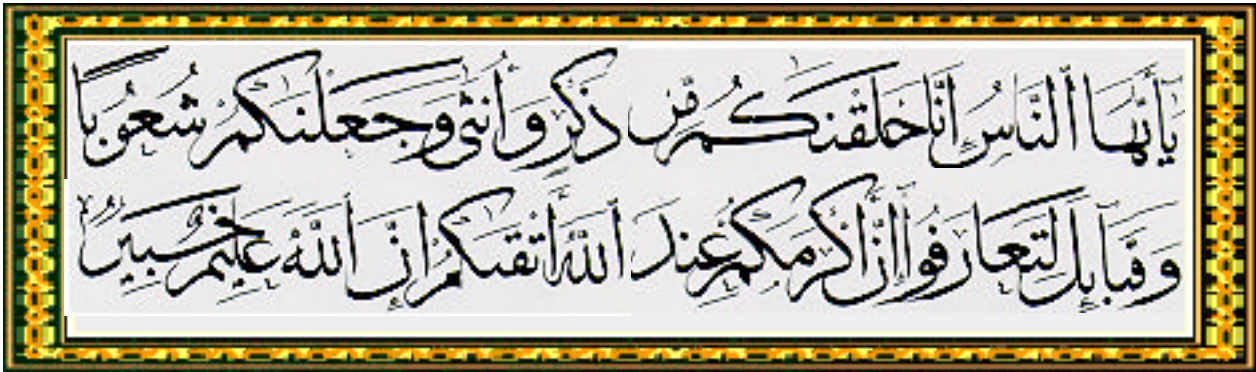 يَٰٓأَيُّهَا ٱلنَّاسُ إِنَّا خَلَقْنَٰكُم مِّن ذَكَرٍ وَأُنثَىٰ وَجَعَلْنَٰكُمْ شُعُوبًا
وَقَبَآئِلَ لِتَعَارَفُوٓا۟ إِنَّ أَكْرَمَكُمْ عِندَ ٱللَّهِ أَتْقَىٰكُمْ إِنَّ ٱللَّهَ عَلِيمٌ خَبِيرٌ